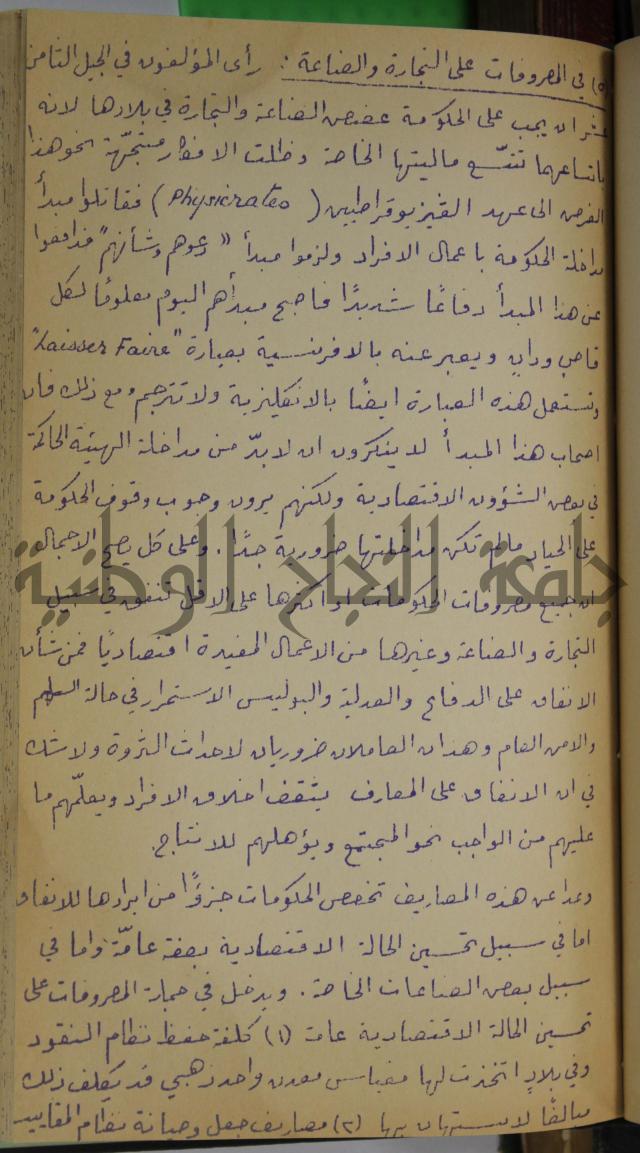 (٥) في المصروفات على التجارة والصناعة : رأى المؤلفون في الجيل الثامن
عشر ان يجب على الحكومة عضد الصناعة والتجارة في بلادها لانه
باتساعهما تتسع ماليتها الخاصة وظلت الافكار متجهة نحو هذا
الغرض الى عهد الفيزيوقراطيين (Physicrates) فقاتلوا مبدأ
مداخلة الحكومة باعمال الافراد ولزموا مبدأ "دعوهم وشأنهم" فدافعوا
عن هذا المبدأ دفاعًا شديدًا فاصبح مبدأهم اليوم معلومًا لكل
قاصٍ ودانٍ ويعبر عنه بالافرنسية بعبارة "Laisser Faire"
وتستعمل هذه العبارة ايضًا بالانكليزية ولا تترجم ومع ذلك فان
اصحاب هذا المبدأ لا ينكرون ان لا بدّ من مداخلة الهيئة الحاكمة
في بعض الشؤون الاقتصادية ولكنهم يرون وجوب وقوف الحكومة
على الحياد مالم تكن مداخلتها ضرورية جدًا. وعلى كل يصح الاجمال
ان جميع مصروفات الحكومات او اكثرها على الاقل تنفق في سبيل
التجارة والصناعة وغيرها من الاعمال المفيدة اقتصاديًا فمن شأن
الانفاق على الدفاع والعدلية والبوليس الاستمرار في حالة السلم
والامن العام وهذان العاملان ضروريان لاحداث الثروة ولا شك
في ان الانفاق على المعارف يثقف اخلاق الافراد ويعلّمهم ما
عليهم من الواجب نحو المجتمع ويؤهلهم للانتاج.
وعدا عن هذه المصاريف تخصص الحكومات جزؤًا من ايرادها للانفاق
اما في سبيل تحسين الحالة الاقتصادية بصفة عامّة واما في
سبيل بعض الصناعات الخاصة. ويدخل في جملة المصروفات على
تحسين الحالة الاقتصادية عامة (١) كلفة حفظ نظام النقود
وفي بلادٍ اتخذت لها مقياس معدن واحد ذهبي قد يكلف ذلك
مبالغًا لا يستهان بها (٢) مصاريف جعل وصيانة نظام المقاييس
جامعة النجاح الوطنية